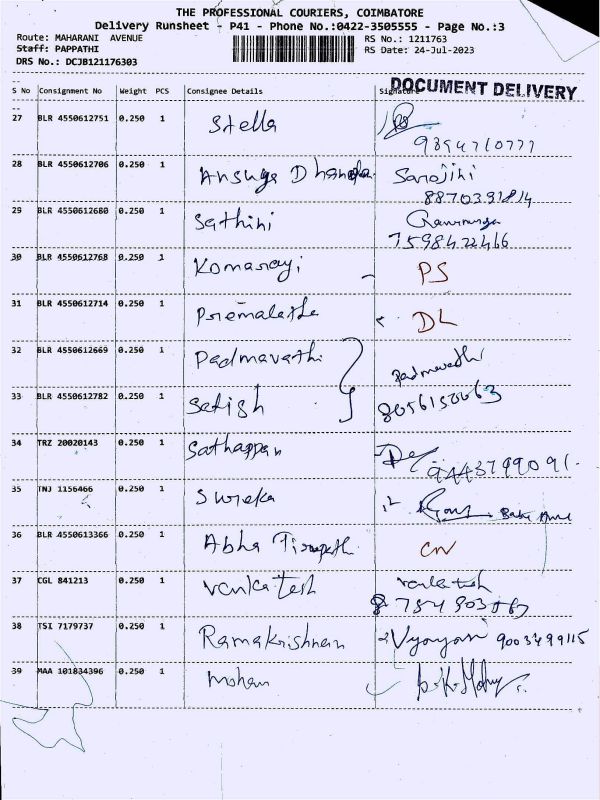 THE PROFESSIONAL COURIERS, COIMBATORE
Delivery Runsheet - P41 - Phone No.:0422-3505555 - Page No.:3
Route: MAHARANI AVENUE RS No.: 1211763
Staff: PAPPATHI RS Date: 24-Jul-2023
DRS No.: DCJB121176303
DOCUMENT DELIVERY
S No Consignment No Weight PCS Consignee Details Signature
27 BLR 4550612751 0.250 1 Stella
9894710777
28 BLR 4550612706 0.250 1 Ansuya Sarojini
8870391814
29 BLR 4550612680 0.250 1 Sathini
7598422466
30 BLR 4550612768 0.250 1 Komarayi PS
31 BLR 4550612714 0.250 1 Premalatha DL
32 BLR 4550612669 0.250 1 Padmavathi Padmavathi
33 BLR 4550612782 0.250 1 Satish 8056150063
34 TRZ 20020143 0.250 1 Sathappan 9443799091.
35 TNJ 1156466 0.250 1 Surreka
36 BLR 4550613366 0.250 1 Abha CN
37 CGL 841213 0.250 1 Venkatesh Venkatesh
38 TSI 7179737 0.250 1 Ramakrishnan 9003499115
39 MAA 101834396 0.250 1 Mohan